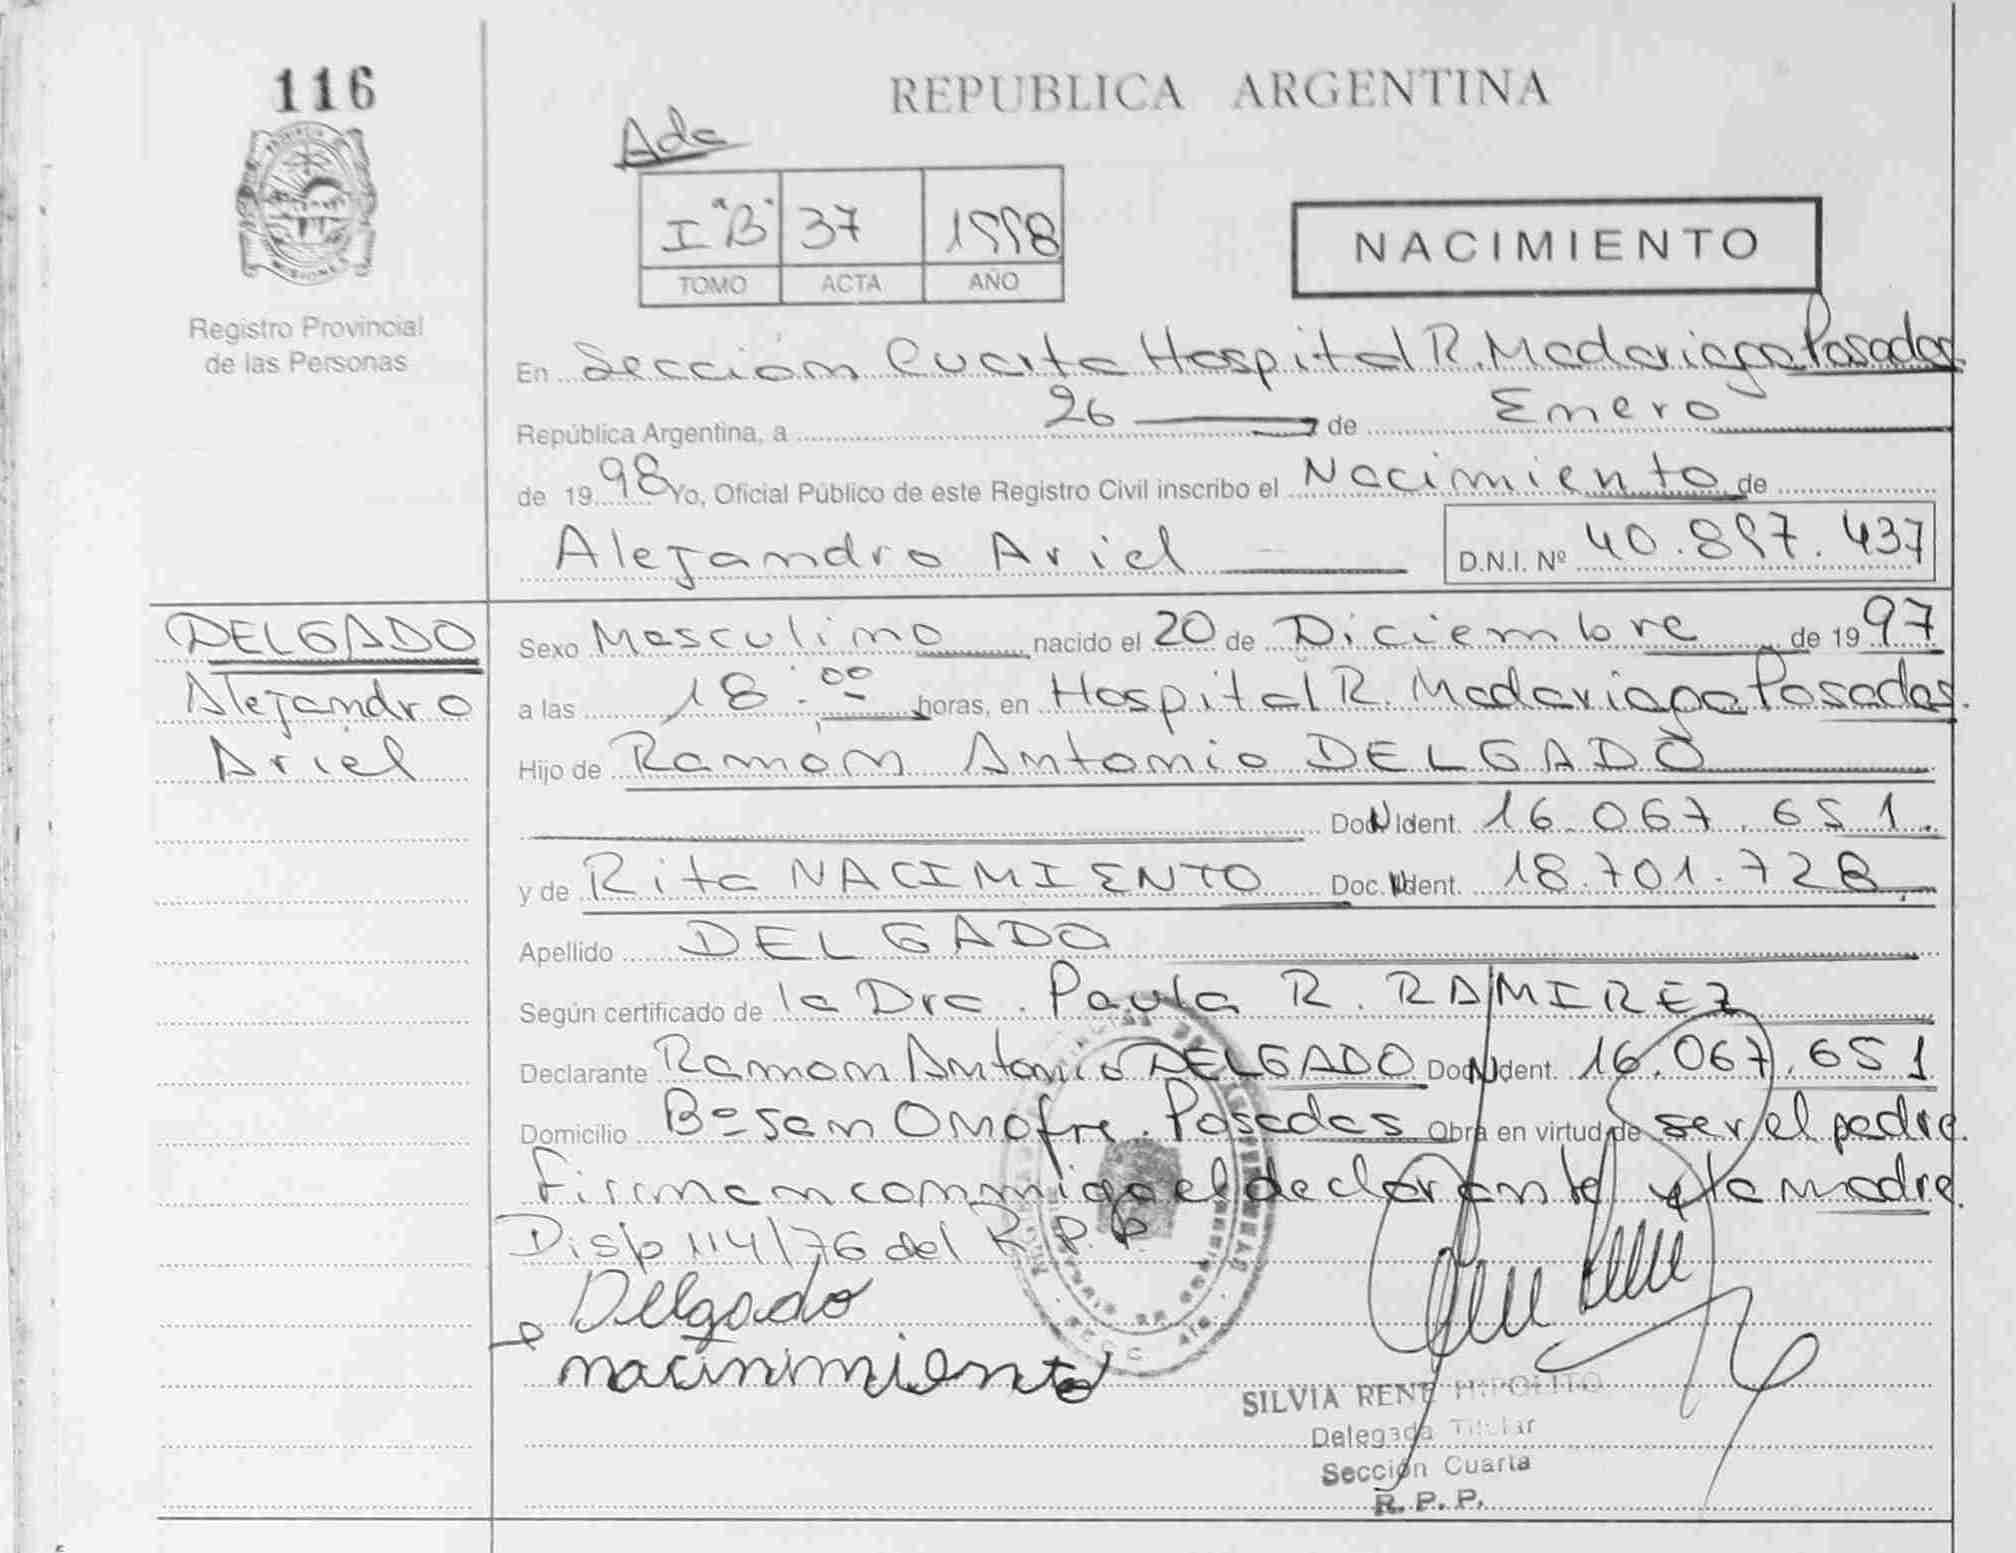 116
REPUBLICA ARGENTINA
Ada
I "B" 37 1998
TOMO ACTA AÑO
NACIMIENTO
MISIONES
Registro Provincial
de las Personas
En Sección Cuarta Hospital R. Madariaga Posadas.
República Argentina, a 26 de Enero
de 1998 Yo, Oficial Público de este Registro Civil inscribo el Nacimiento de
Alejandro Ariel D.N.I. Nº 40.897.437
DELGADO
Alejandro
Ariel
Sexo Masculino nacido el 20 de Diciembre de 1997
a las 18:00 horas, en Hospital R. Madariaga Posadas.
Hijo de Ramón Antonio DELGADO
Doc. N Ident. 16.067.651.
y de Rita NACIMIENTO Doc. N Ident. 18.701.728
Apellido DELGADO
Según certificado de la Dra. Paula R. RAMIREZ
Declarante Ramon Antonio DELGADO Doc. N Ident. 16.067.651
Domicilio Bº San Onofre. Posadas Obra en virtud de ser el padre.
Firman conmigo el declarante y la madre.
Disp 114/76 del R.P.P.
Delgado
nacinimiento
SILVIA RENE HIPOLITO
Delegada Titular
Sección Cuarta
R. P. P.